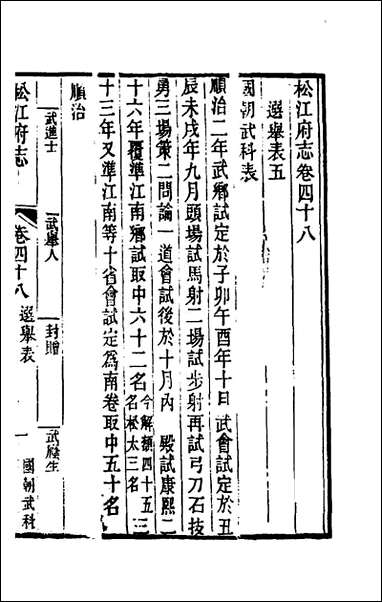 松江府志卷四十八
選舉表五
國朝武科表
順治二年武鄉試定於子卯午酉年十月武會試定於丑
辰未戌年九月頭場試馬射二場試步射再試弓刀石技
勇三場策二問論一道會試後於十月內 殿試康熙二
十六年覆準江南鄉試取中六十二名今解額四十五名松太三名三
十三年又準江南等十省會試定為南卷取中五十名
順治
武進士 武舉人 封贈 武廕生
松江府志 卷四十八 選舉表 一 國朝武科